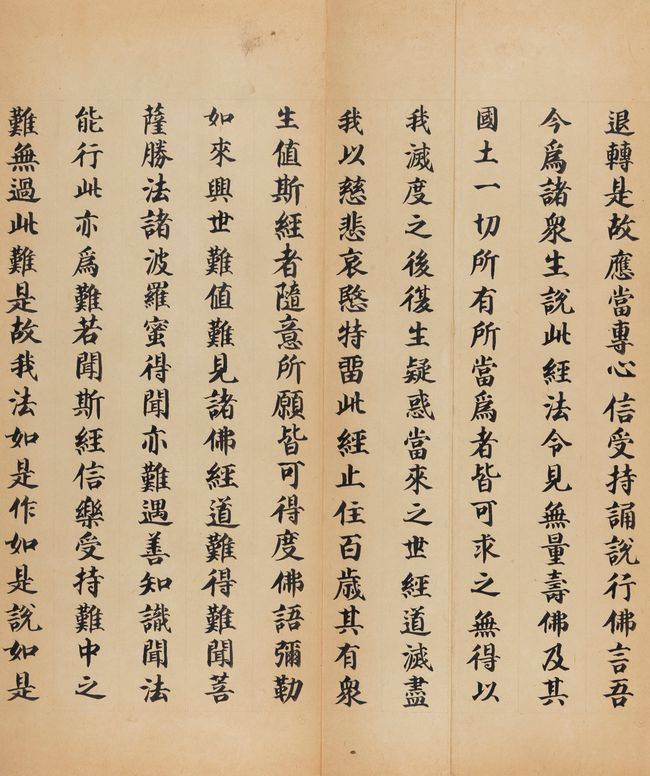 退轉是故應當專心信受持誦說行佛言吾
今爲諸衆生說此經法令見無量壽佛及其
國土一切所有所當爲者皆可求之無得以
我滅度之後復生疑惑當來之世經道滅盡
我以慈悲哀愍特留此經止住百歲其有衆
生值斯經者隨意所願皆可得度佛語彌勒
如來興世難值難見諸佛經道難得難聞菩
薩勝法諸波羅蜜得聞亦難遇善知識聞法
能行此亦爲難若聞斯經信樂受持難中之
難無過此難是故我法如是作如是說如是